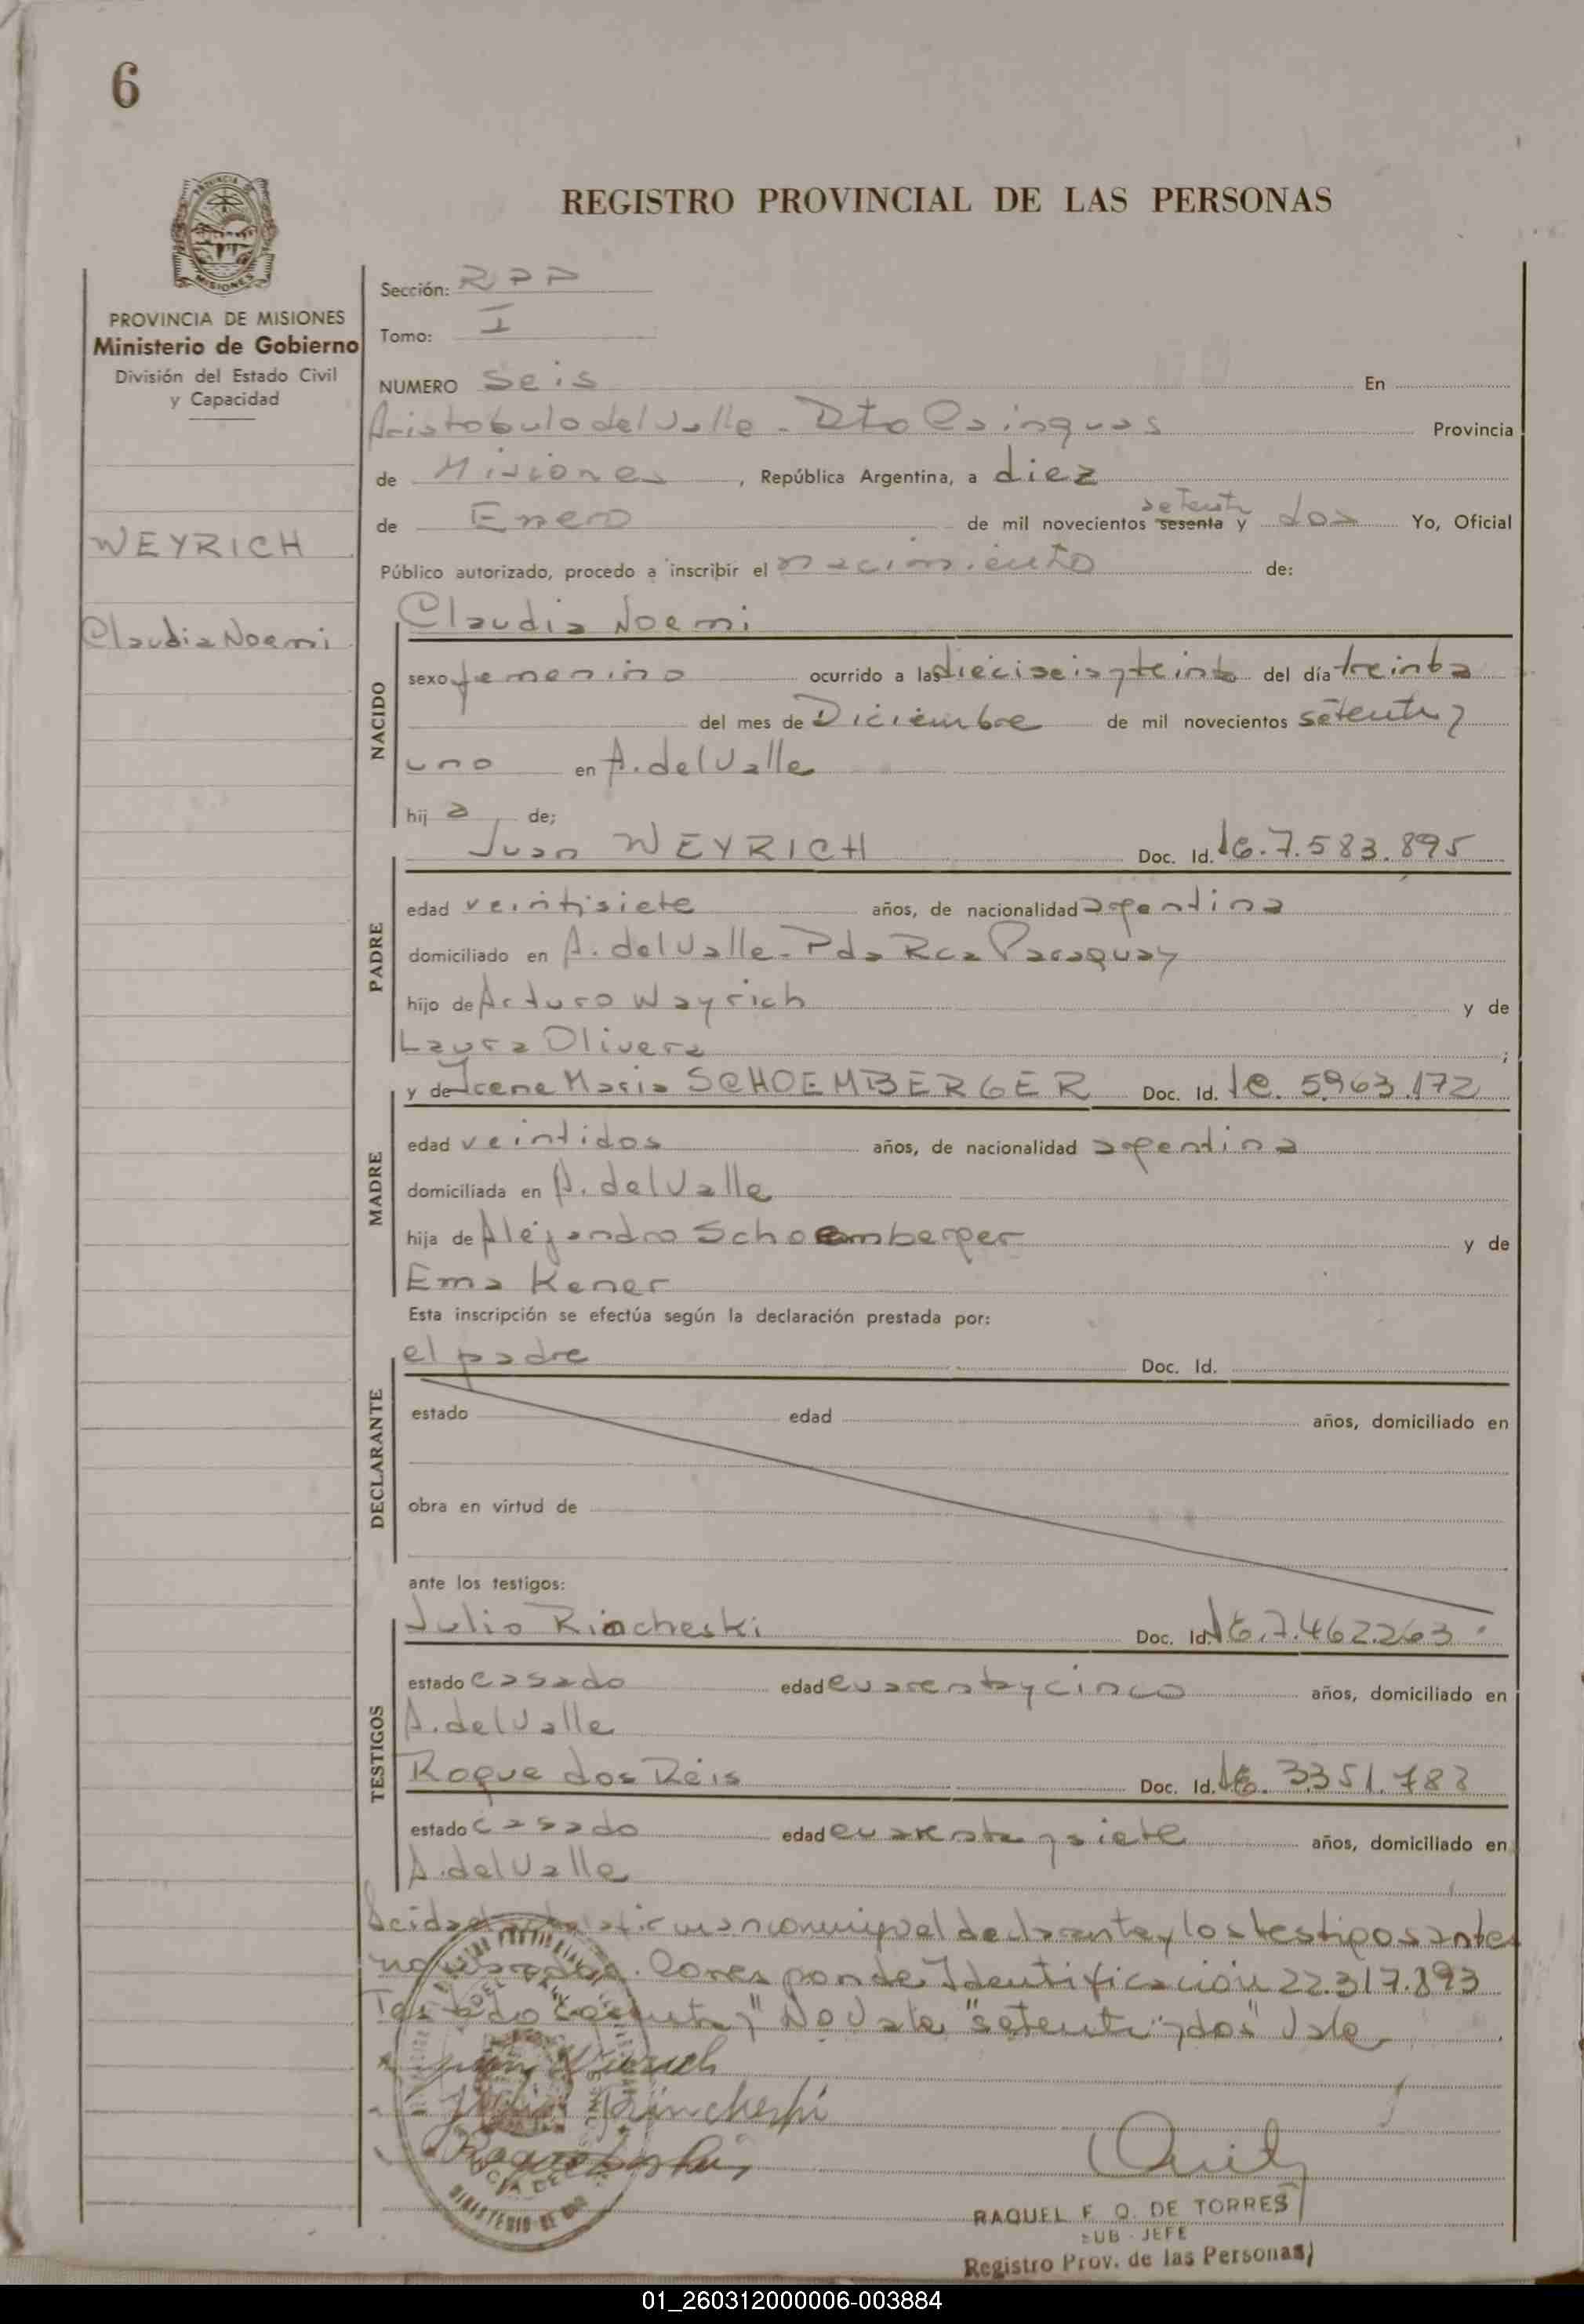 6
REGISTRO PROVINCIAL DE LAS PERSONAS
PROVINCIA DE MISIONES
Ministerio de Gobierno
División del Estado Civil
y Capacidad
WEYRICH
Claudia Noemi
Sección: RPP
Tomo: I
NUMERO Seis En
Aristobulo del Valle - Dto Cainguas Provincia
de Misiones, República Argentina, a diez
de Enero de mil novecientos sesenta setenta y dos Yo, Oficial
Público autorizado, procedo a inscribir el nacimiento de:
NACIDO
Claudia Noemi
sexo femenino ocurrido a las dieciseis y treinta del día treinta
del mes de Diciembre de mil novecientos setenta y
uno en A. del Valle
hij a de;
PADRE
Juan WEYRICH Doc. Id. 7.583.895
edad veintisiete años, de nacionalidad argentina
domiciliado en A. del Valle - Pda Rca Paraguay
hijo de Arturo Wayrich y de
Laura Olivera ;
MADRE
y de Irene Maria SCHOEMBERGER Doc. Id. lc. 5.963.172
edad veintidos años, de nacionalidad argentina
domiciliada en A. del Valle
hija de Alejandro Schoemberger y de
Ema Kener
Esta inscripción se efectúa según la declaración prestada por:
DECLARANTE
el padre Doc. Id.
estado edad años, domiciliado en
obra en virtud de
ante los testigos:
TESTIGOS
Julio Rincheski Doc. Id. 7.462.263
estado casado edad cuarenta y cinco años, domiciliado en
A. del Valle
Roque dos Reis Doc. Id. 3351.783
estado casado edad cuarenta y siete años, domiciliado en
A. del Valle
Leida el acta la firman conmigo el declarante y los testigos ante
nombrados. Corresponde Identificación 22.317.893
Testado sesenta y" No Vale "setenta y dos" Vale
Juan Weirich
Julio Rincheski
Roque dos Reis
RAQUEL F. O. DE TORRES
SUB - JEFE
Registro Prov. de las Personas
01_260312000006-003884